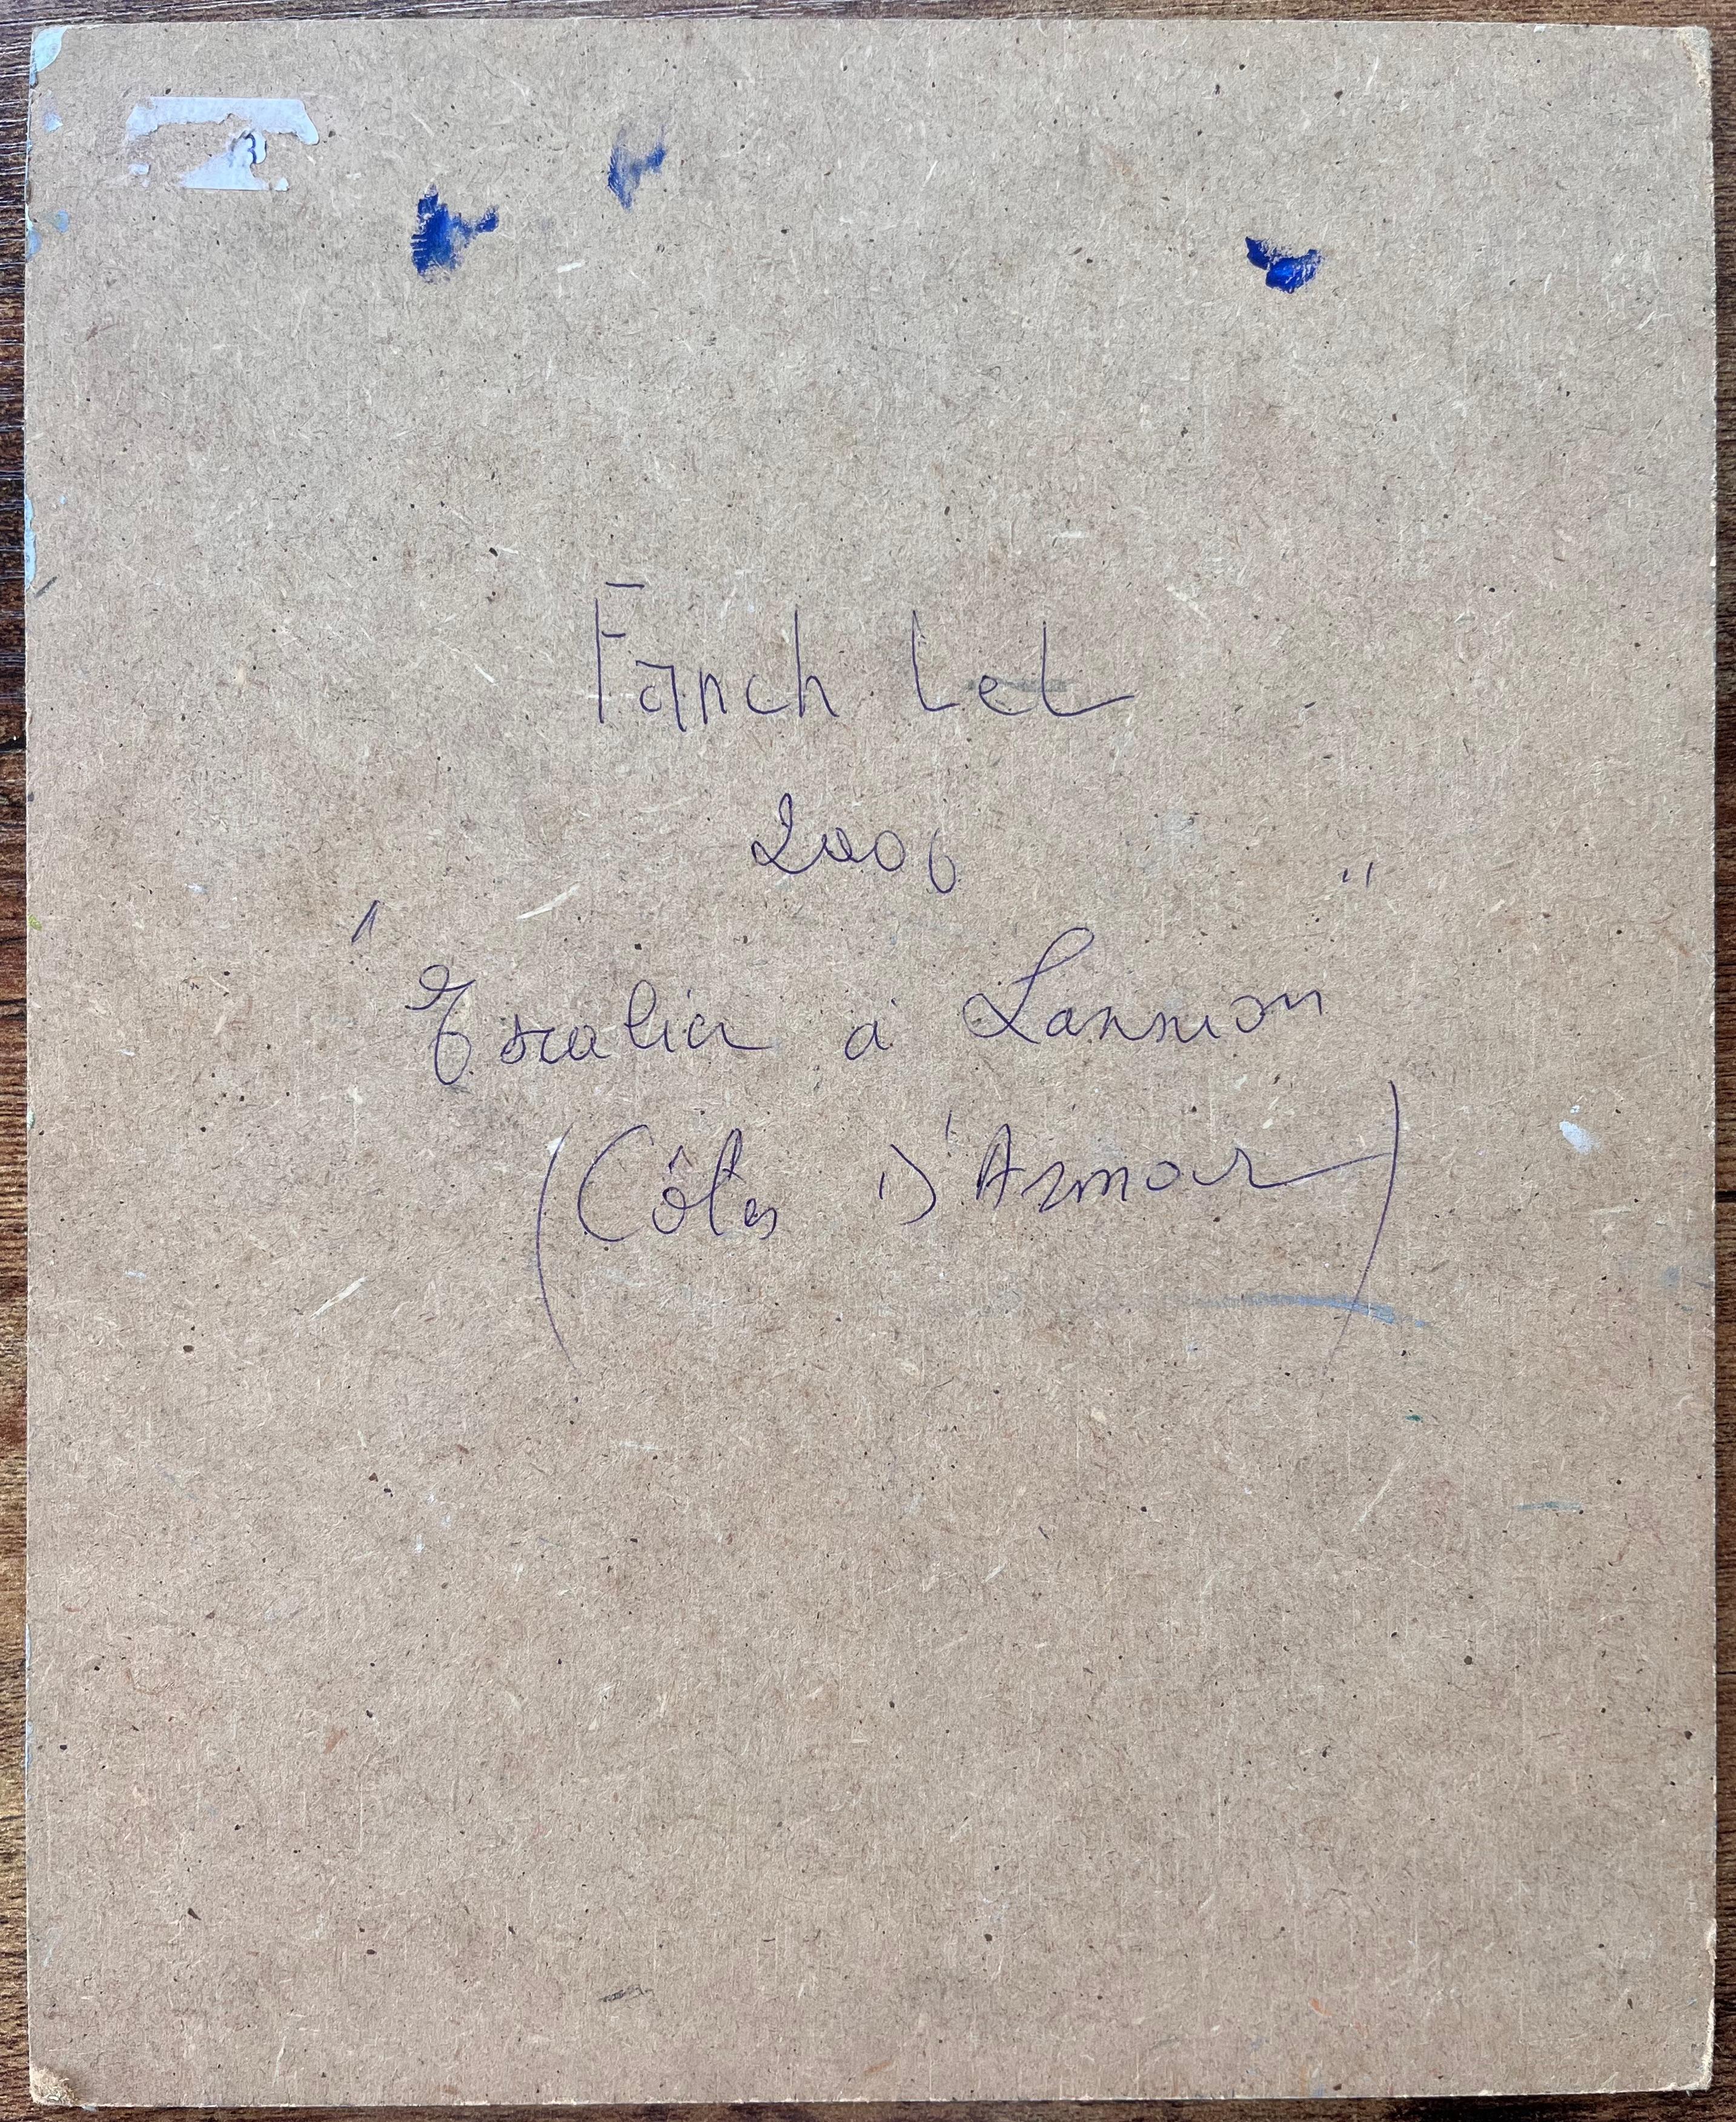 3
Fanch Lel
2006
"Escalier à Lannion"
(Côtes D'Armor)